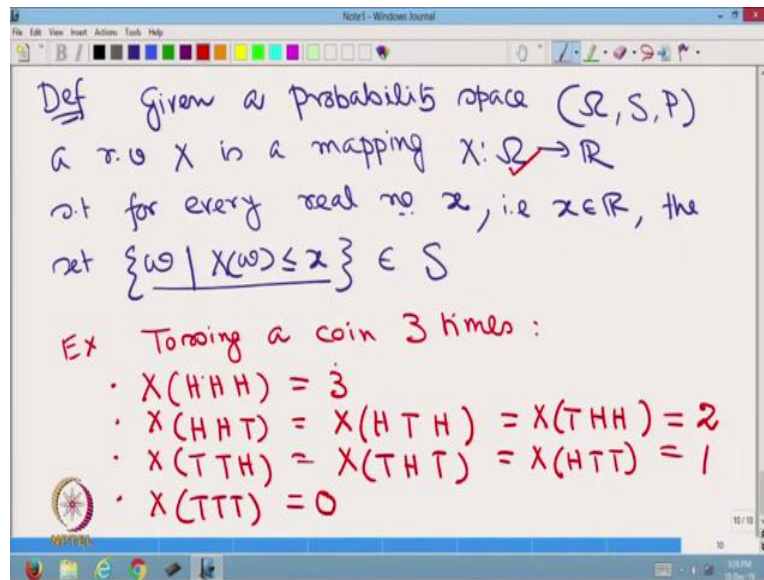 Note1 - Windows Journal
File Edit View Insert Actions Tools Help
Def Given a probability space (Ω, S, P)
a r.v X is a mapping X: Ω → ℝ
s.t for every real no x, i.e x ∈ ℝ, the
set {ω | X(ω) ≤ x} ∈ S
Ex Tossing a coin 3 times :
· X(HHH) = 3
· X(HHT) = X(HTH) = X(THH) = 2
· X(TTH) = X(THT) = X(HTT) = 1
· X(TTT) = 0
NPTEL
10 / 10
10